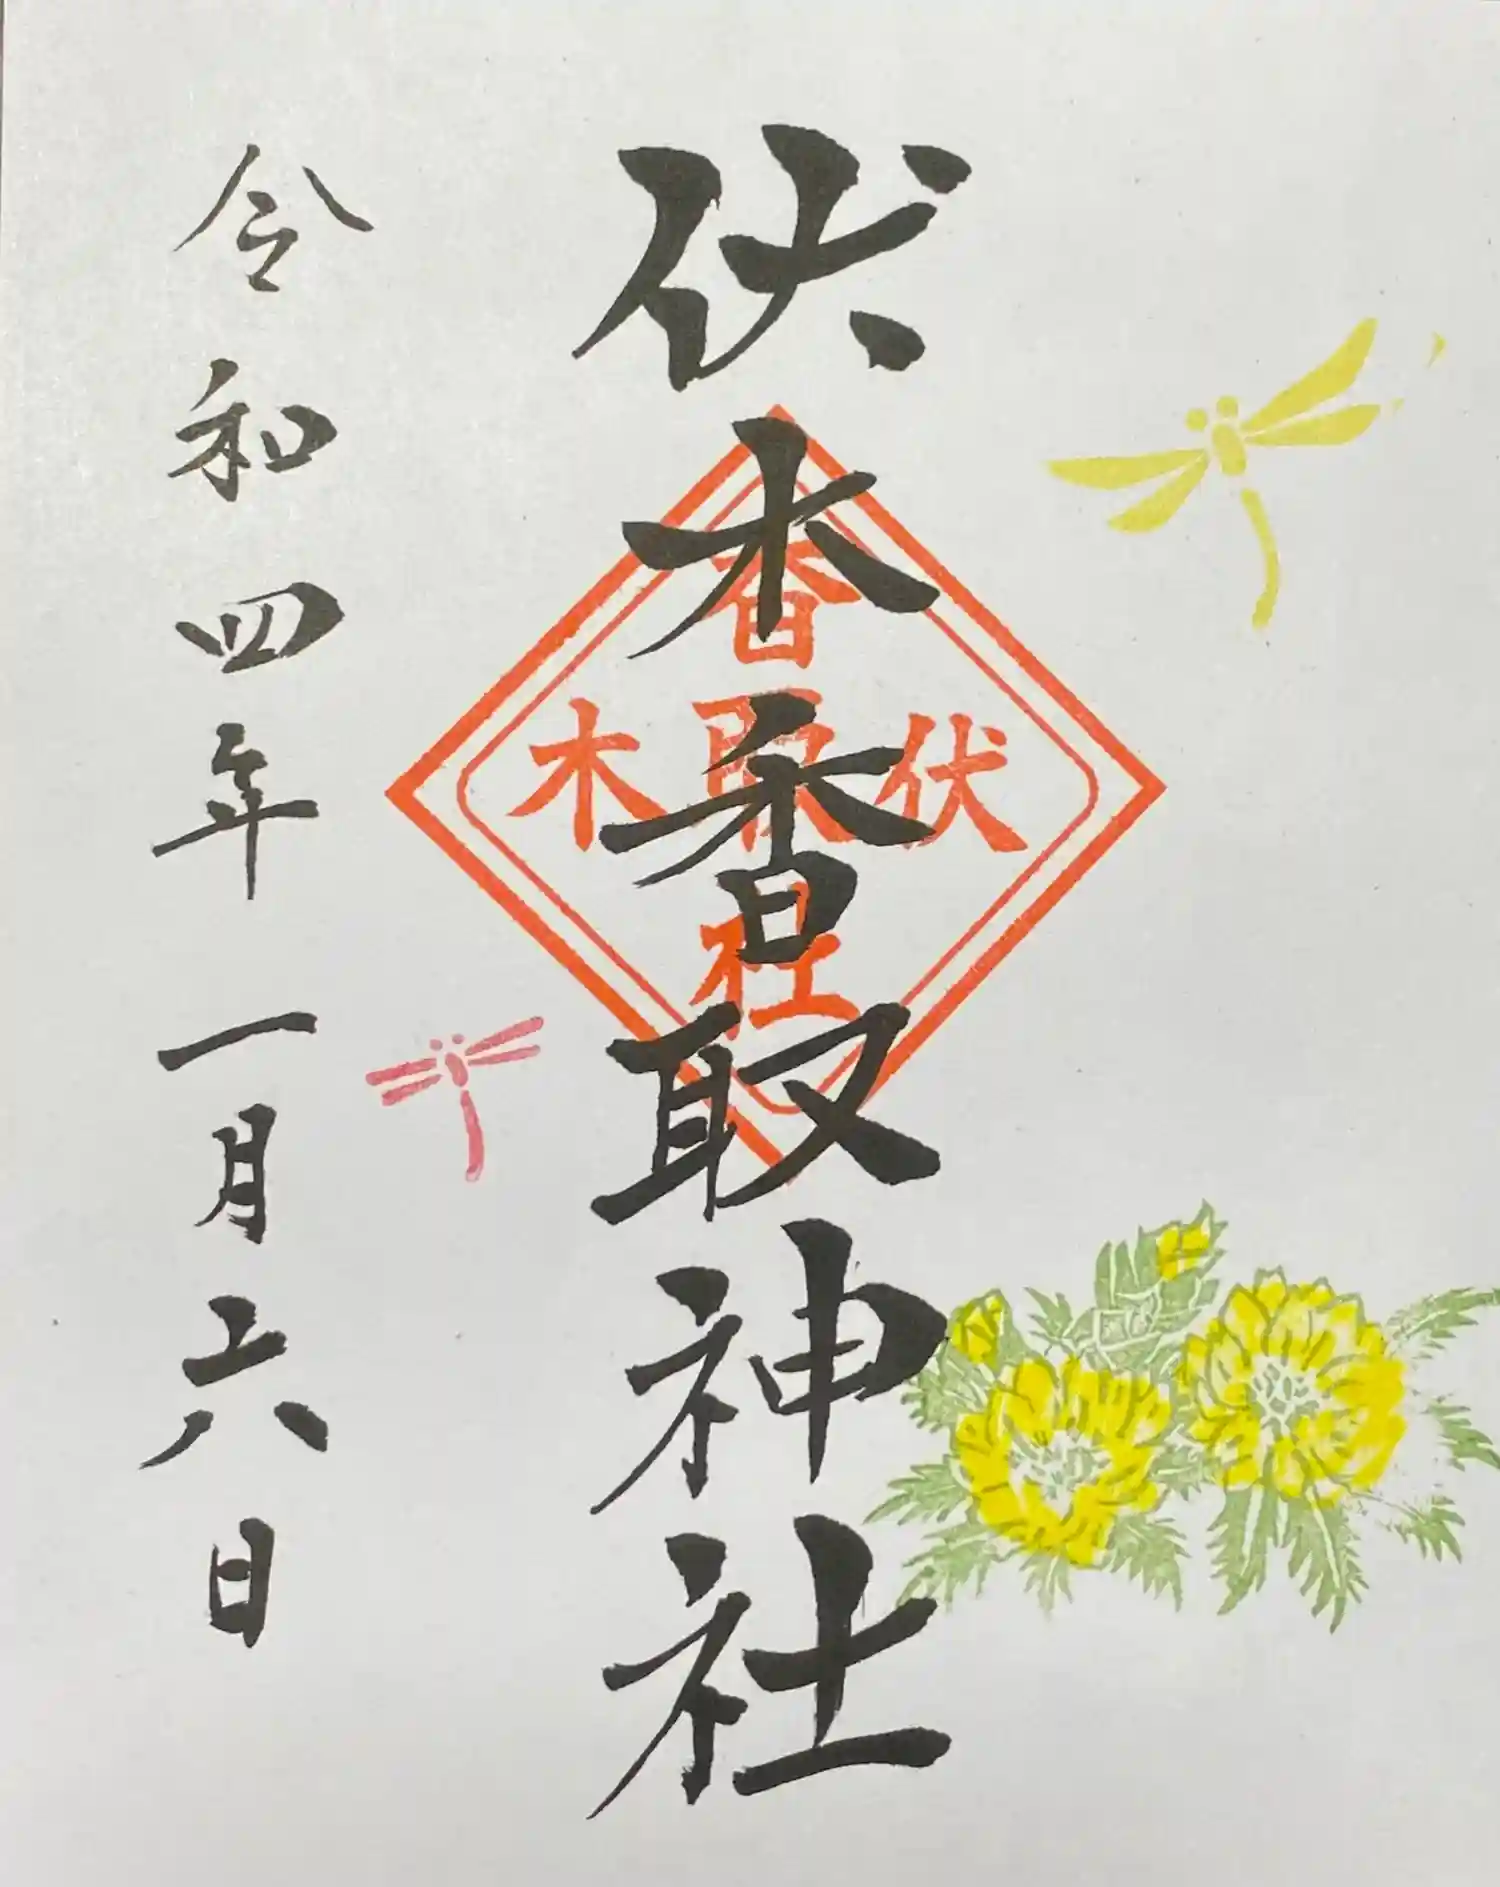 伏木香取神社
伏
香取社
木
令和四年一月六日